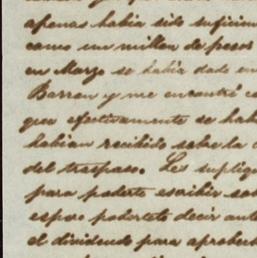 apenas habia sido suficien
como un millon de pesos
en Marzo se habia dado en
Barron y me encontré c
que efectivamente se hab
habian recibido sobre la c
del traspaso. Les supliqu
para poderte escribir sob
espero podertelo decir ante
el dividendo para aprobech